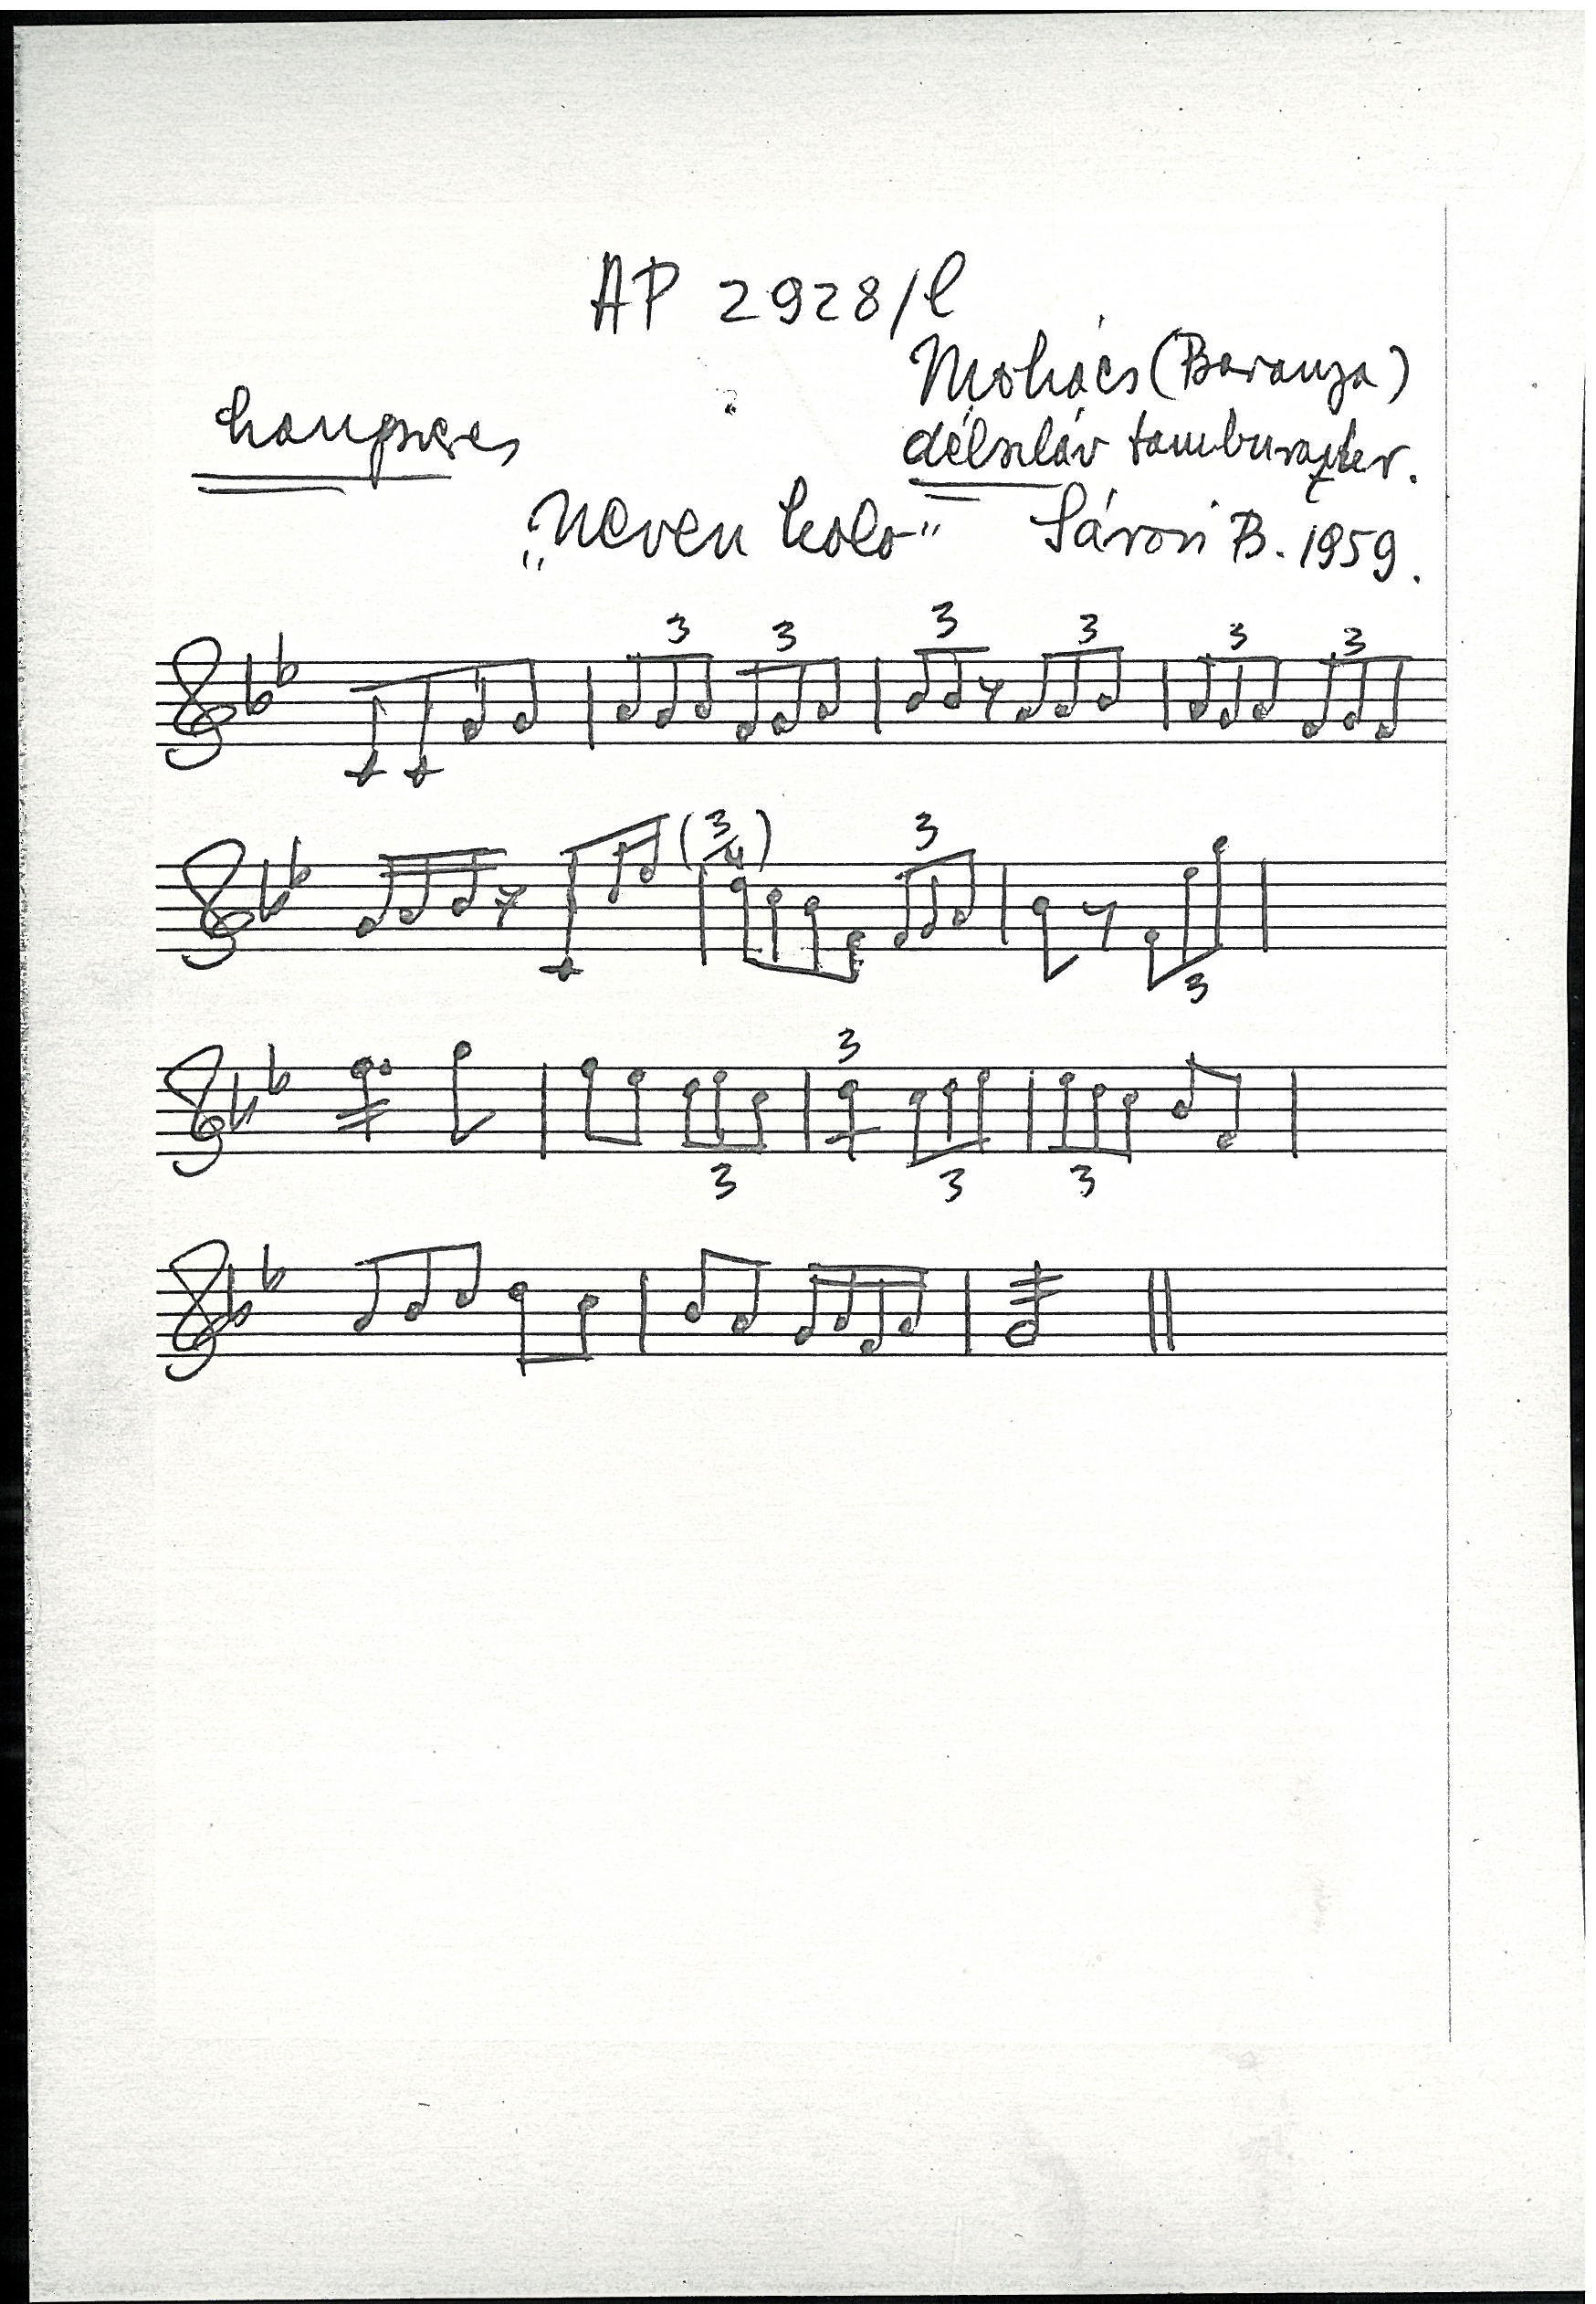 AP 2928/l
Mohács (Baranya)
hangszeres
délszláv tamburazeker.
„Neven kolo" Sárosi B. 1959.
3 3 3 3 3 3
(3/4) 3
3
3
3 3 3